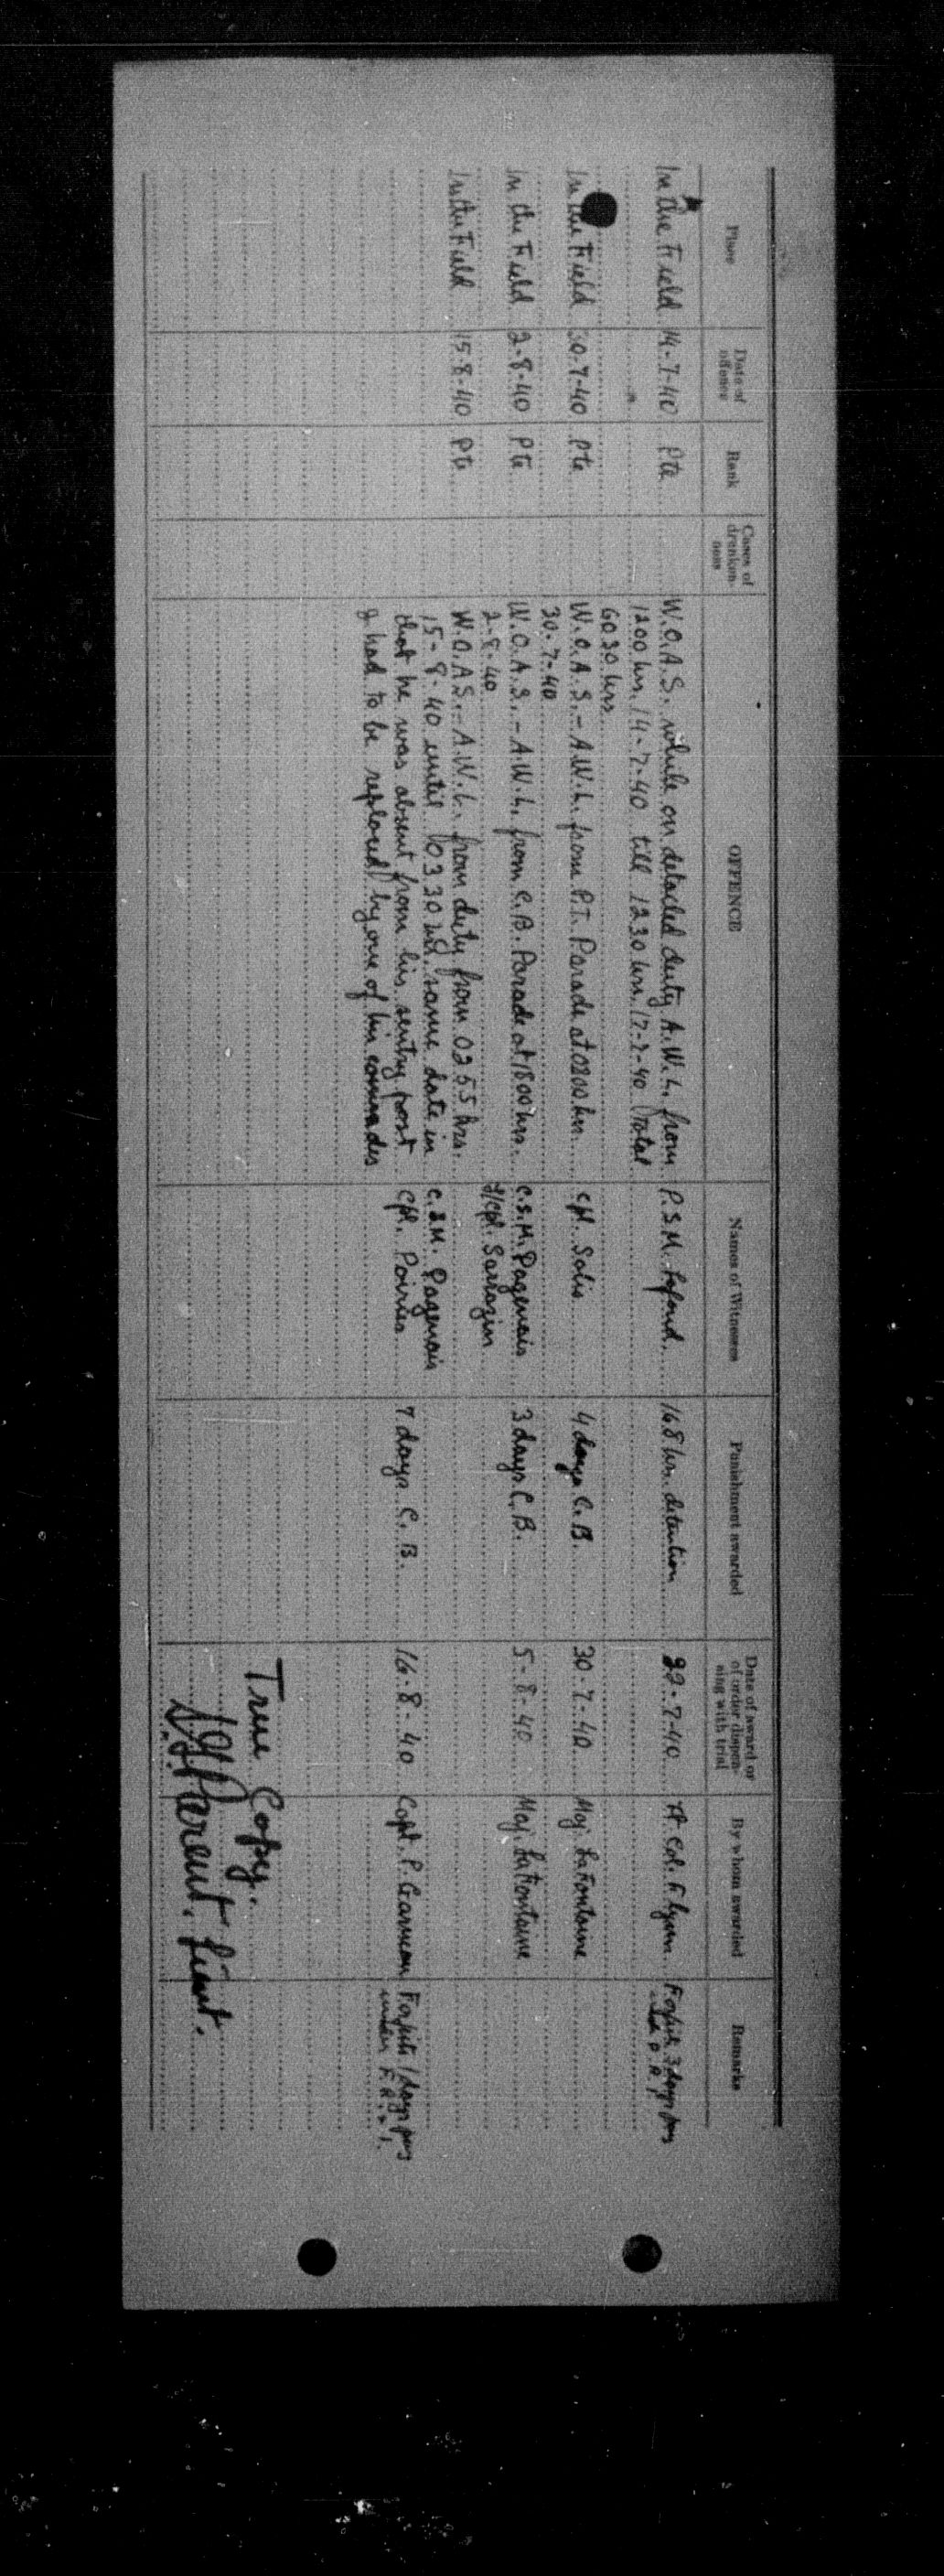 Place
Date of offence
Rank
Cases of drunkenness
OFFENCE
Names of Witnesses
Punishment awarded
Date of award or of order dispensing with trial
By whom awarded
Remarks
In the Field 14-7-40 Pte W.O.A.S. while on detached duty A.W.L. from P.S.M. 168 hrs. detention 22-7-40 Lt. Col. Flynn 3 days pay
1200 hrs. 14-7-40 till 1230 hrs. 17-7-40 (Total
6030 hrs.
In the Field 30-7-40 Pte W.O.A.S. - A.W.L. from P.T. Parade at 0200 hrs. Cpl. Solis 4 days C.B 30-7-40 Maj. LaFontaine
30-7-40
In the Field 2-8-40 Pte W.O.A.S. - A.W.L. from C.B. Parade at 1800 hrs. C.S.M. Pagenais 3 days C.B. 5-8-40 Maj. LaFontaine
2-8-40 L/Cpl. Sarrazin
In the Field 15-8-40 Pte W.O.A.S. - A.W.L. from duty from 0255 hrs.
15-8-40 until 0330 same date in C.S.M. Pagenais
that he was absent from his sentry post Cpl. Poirier 7 days C.B. 16-8-40 Capt. P. Garneau Forfeits 1 days pay
& had to be replaced by one of his comrades under
True Copy.
Parent, Lieut.